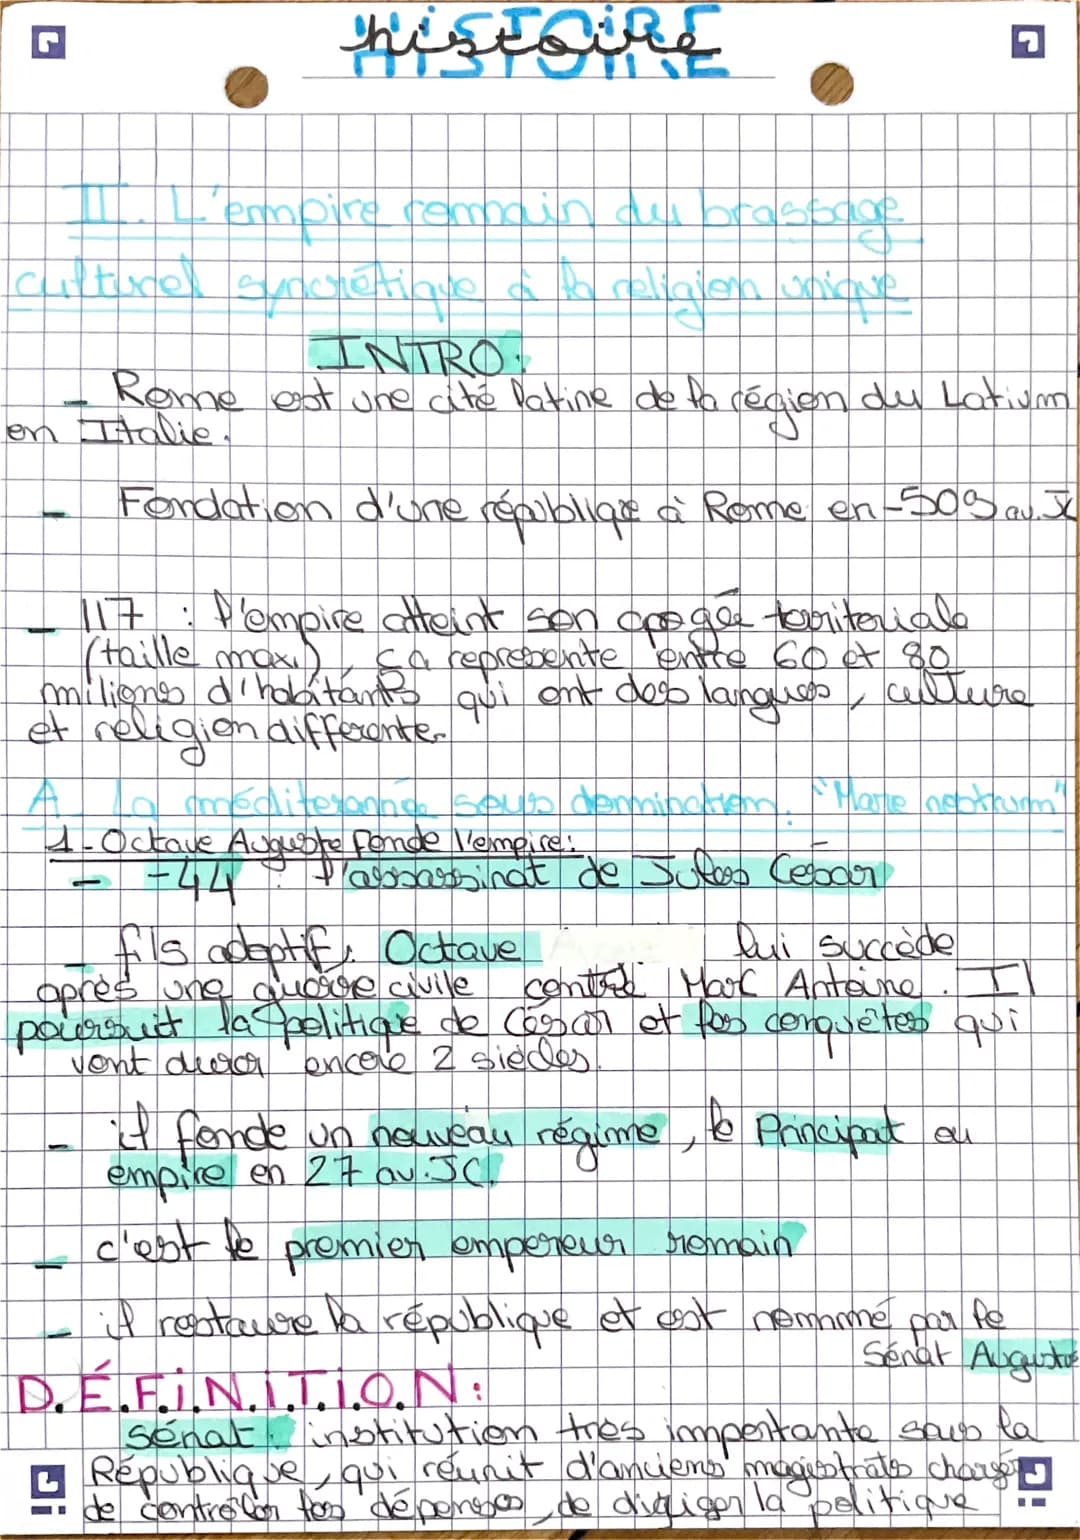 histoire
HISTOIRE
II. L'empire romain du brassage
culturel syncrétique à la religion unique
INTRO:
- Rome est une cité latine de la région du Latium
en Italie.
- Fondation d'une république à Rome en -509 av. JC
- 117 : l'empire atteint son apogée territoriale
(taille max.), ça represente entre 60 et 80
milions d'habitants qui ont des langues, culture
et religion differente.
A. La méditerannée sous domination. "Mare nostrum"
1 - Octave Auguste fonde l'empire:
- -44 : l'assassinat de Jules César
- fils adoptif, Octave lui succède
après une guerre civile contre Marc Antoine. Il
poursuit la politique de César et les conquêtes qui
vont durer encore 2 siècles.
- il fonde un nouveau régime, le Principat ou
empire en 27 av. JC.
- c'est le premier empereur romain
- il restaure la république et est nommé par le
Sénat Auguste
D.É.F.I.N.I.T.I.O.N:
Sénat: institution très importante sous la
République, qui réunit d'anciens magistrats chargés
de contrôler les dépenses, de diriger la politique